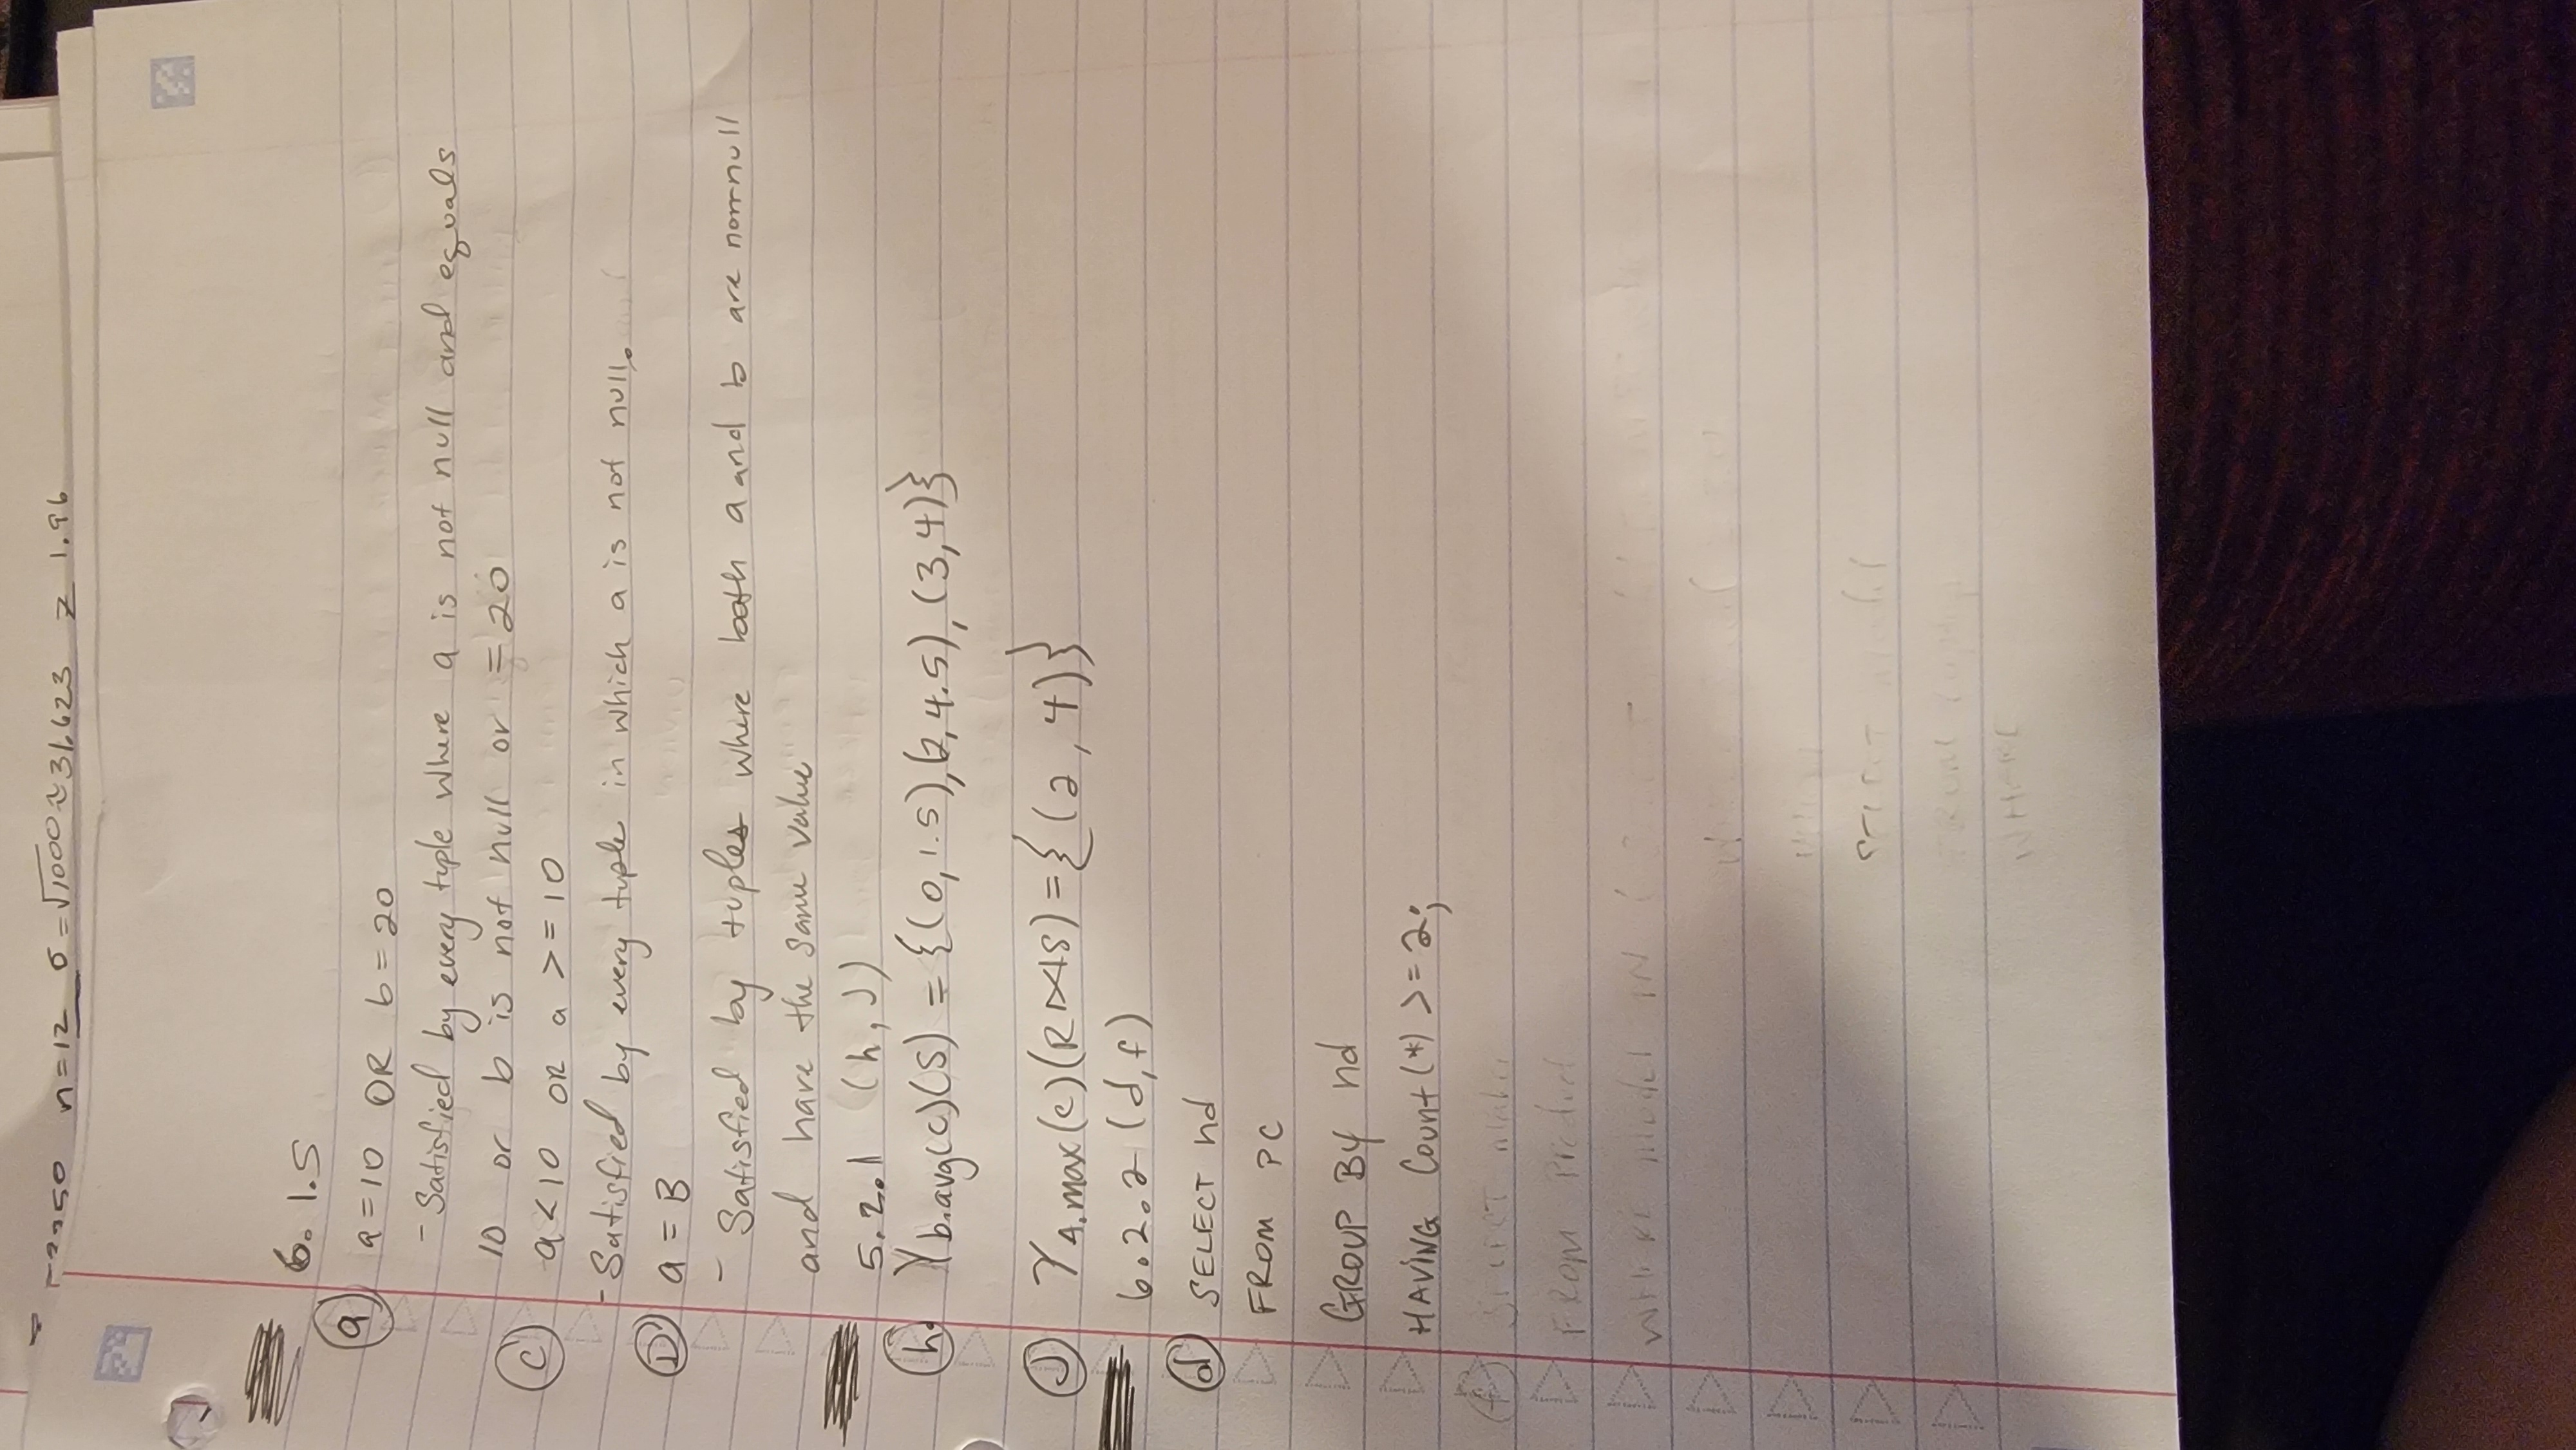 n=12 σ=√1000≈31.623 z 1.96
6. 1.5
a a=10 OR b=20
- Satisfied by every tuple where a is not null and equals
10 or b is not null or =20
C a<10 OR a >=10
- Satisfied by every tuple in which a is not null.
D a = B
- Satisfied by tuples where both a and b are nonnull
and have the same value
5.2.1 (h, J)
h. γb.avg(c)(S) = {(0,1.5),(2,4.5),(3,4)}
J γA.max(c)(R⋈S)={(2,4)}
6.2.2 (d,f)
d SELECT hd
FROM PC
GROUP BY hd
HAVING Count(*) >=2;
f SELECT maker
FROM Product
WHERE model IN (